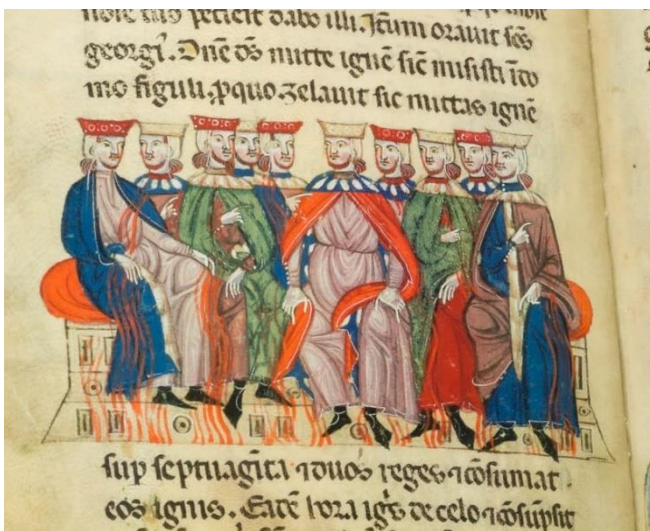 petieit dabo illi. Itum orauit scs
georgi. Dne ds mitte igne sic misisti ido
mo figuli. p quo zelauit sic mittas igne
sup septuagita ⁊ duos reges ⁊ cosumat
eos ignis. Eade hora igs de celo ⁊ cosupsit